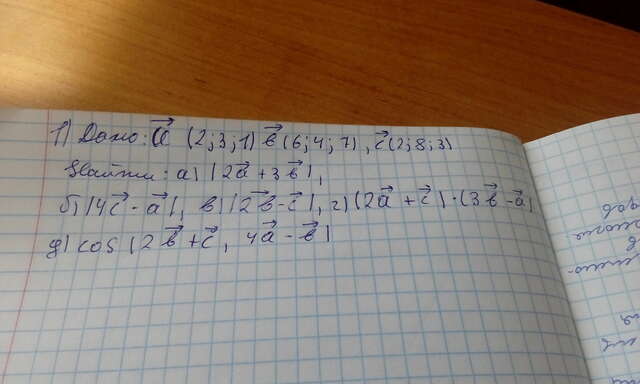 1) Дано: a⃗ (2; 3; 1) b⃗ (6; 4; 7), c⃗ (2; 8; 3)
Найти: а) |2a⃗ + 3b⃗|,
б) |4c⃗ - a⃗|, в) |2b⃗ - c⃗|, г) (2a⃗ + c⃗) · (3b⃗ - a⃗)
д) cos (2b⃗ + c⃗, 4a⃗ - b⃗)